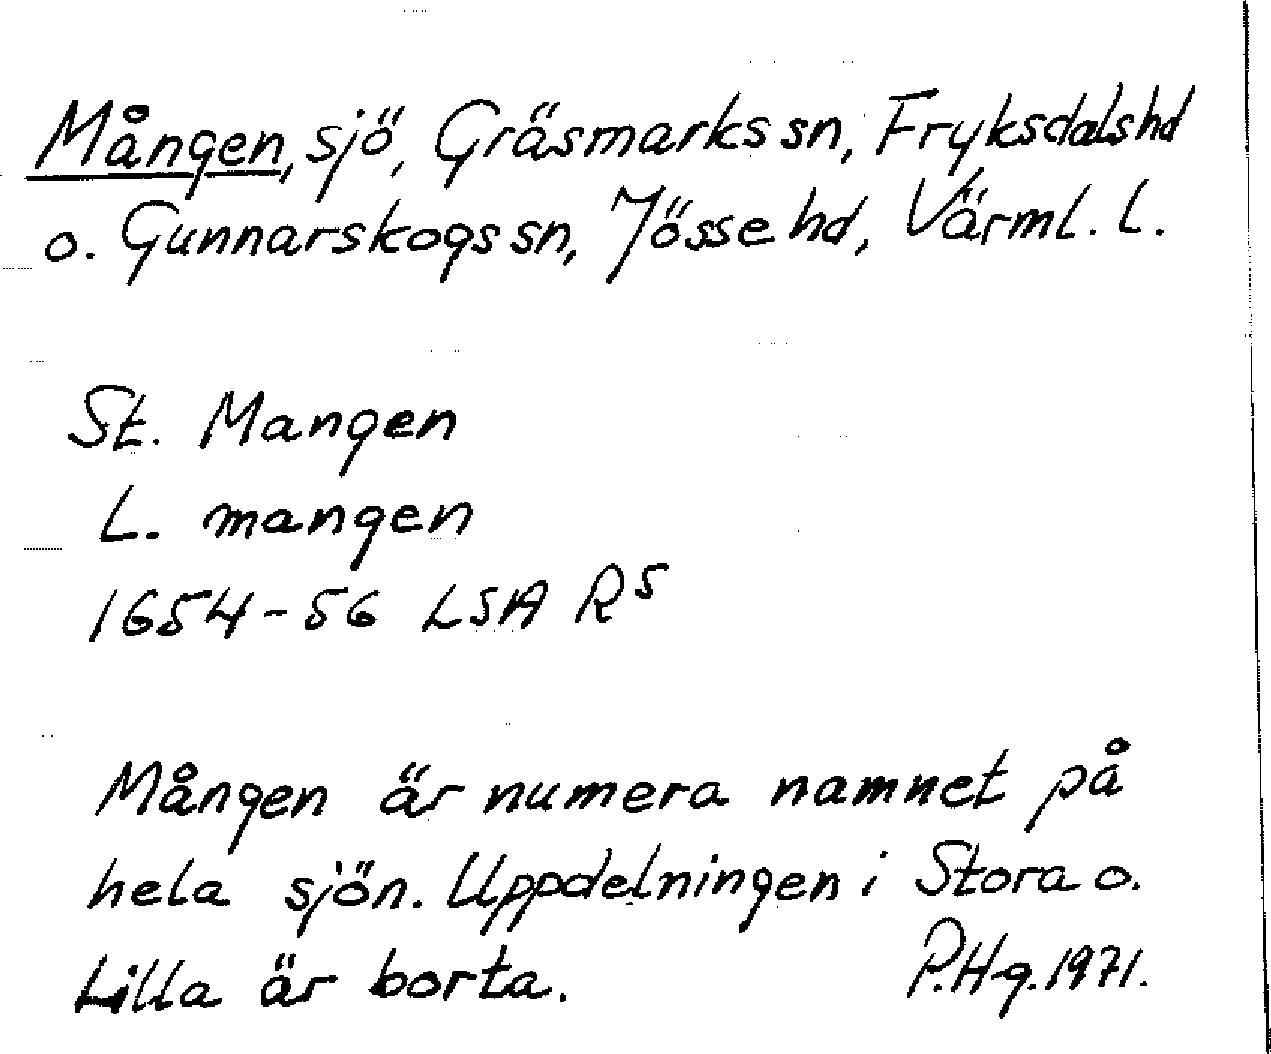 Mången, sjö, Gräsmarks sn, Fryksdals hd
o. Gunnarskogs sn, Jösse hd, Värml. l.
St. Mangen
L. mangen
1654-56 LSA R⁵
Mången är numera namnet på
hela sjön. Uppdelningen i Stora o.
Lilla är borta. P.Hg. 1971.